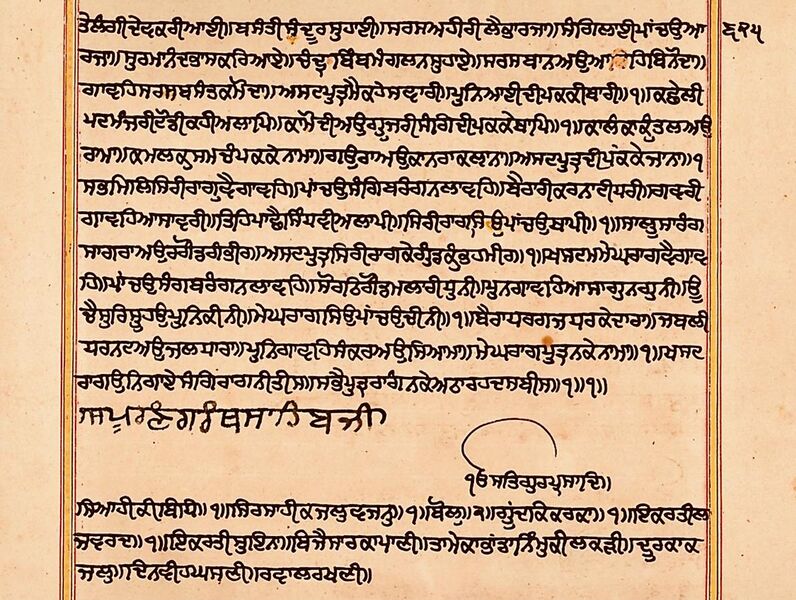 ਤੇਲੰਗੀਦੇਵਕਰੀਆਈ॥ਬਸੰਤੀਸੰਦੂਰਸੁਹਾਈ॥ਸਰਸਅਹੀਰੀਲੈਭਾਰਜਾ॥ਸੰਗਿਲਾਈਪਾਂਚਉਆ ੬੨੫
ਰਜਾ॥ਸੁਰਮਾਨੰਦਭਾਸਕਰਿਆਏ॥ਚੰਦ੍ਰਬਿੰਬਮੰਗਲਨਸੁਹਾਏ॥ਸਰਸਬਾਨਅਉਆਹਿਬਿਨੋਦਾ॥
ਗਾਵਹਿਸਰਸਬਸੰਤਕਮੋਦਾ॥ਅਸਟਪੁਤ੍ਰਮੈਕਹੇਸਵਾਰੀ॥ਪੁਨਿਆਈਦੀਪਕਕੀਬਾਰੀ॥੧॥ਕਛੇਲੀ
ਪਟਮੰਜਰੀਟੋਡੀਕਹੀਅਲਾਪਿ॥ਕਾਮੋਦੀਅਉਗੂਜਰੀਸੰਗਿਦੀਪਕਕੇਥਾਪਿ॥੧॥ਕਾਲੰਕਾਕੁੰਤਲਅਉ
ਰਾਮਾ॥ਕਮਲਕੁਸਮਚੰਪਕਕੇਨਾਮਾ॥ਗਉਰਾਅਉਕਾਨਰਾਕਲ੍ਯਨਾ॥ਅਸਟਪੁਤ੍ਰਦੀਪਕਕੇਜਾਨਾ॥੧
ਸਭਮਿਲਿਸਿਰੀਰਾਗੁਵੈਗਾਵਹਿ॥ਪਾਂਚਉਸੰਗਿਬਰੰਗਨਲਾਵਹਿ॥ਬੈਰਾਰੀਕਰਨਾਟੀਧਰੀ॥ਗਵਰੀ
ਗਾਵਹਿਆਸਾਵਰੀ॥ਤਿਹਿਪਾਛੈਸਿੰਧਵੀਅਲਾਪੀ॥ਸਿਰੀਰਾਗਸਿਉਪਾਂਚਉਥਾਪੀ॥੧॥ਸਾਲੂਸਾਰੰਗ
ਸਾਗਰਾਅਉਰਗੌਡਗੰਭੀਰ॥ਅਸਟਪੁਤ੍ਰਸਿਰੀਰਾਗਕੇਗੁੰਡਕੁੰਭਹਮੀਰ॥੧॥ਖਸਟਮਮੇਘਰਾਗਵੈਗਾਵ
ਹਿ॥ਪਾਂਚਉਸੰਗਬਰੰਗਨਲਾਵਹਿ॥ਸੋਰਠਿਗੋਂਡਮਲਾਰੀਧੁਨੀ॥ਪੁਨਗਾਵਹਿਆਸਾਗੁਨਗੁਨੀ॥ਊ
ਚੈਸੁਰਿਸੂਹਉਪੁਨਿਕੀਨੀ॥ਮੇਘਰਾਗਸਿਉਪਾਂਚਉਚੀਨੀ॥੧॥ਬੈਰਾਧਰਗਜਧਰਕੇਦਾਰਾ॥ਜਬਲੀ
ਧਰਨਟਅਉਜਲਧਾਰਾ॥ਪੁਨਿਗਾਵਹਿਸੰਕਰਅਉਸਿਆਮਾ॥ਮੇਘਰਾਗਪੁਤ੍ਰਨਕੇਨਾਮਾ॥੧॥ਖਸਟ
ਰਾਗਉਨਿਗਾਏਸੰਗਿਰਾਗਨੀਤੀਸ॥ਸਭੈਪੁਤ੍ਰਰਾਗੰਨਕੇਅਠਾਰਹਦਸਬੀਸ॥੧॥੧॥
ਸਪੂਰਣੰਗਰੰਥਸਾਹਿਬਜੀ
ੴਸਤਿਗੁਰਪ੍ਰਸਾਦਿ॥
ਸਿਆਹੀਕੀਬਿਧਿ॥੧॥ਸਿਰਸਾਹੀਕਜਲੁਵਜਨੁ॥੧॥ਬੋਲੁ॥੨॥ਗੂੰਦਕਿਕਰਕਾ॥੧॥ਇਕਰਤੀਲ
ਜਵਰਦ॥੧॥ਇਕਰਤੀਸੁਇਨਾ॥ਬਿਜੈਸਾਰਕਾਪਾਣੀ॥ਤਾਮੇਕਾਭਾਂਡਾਨਿੰਮੁਕੀਲਕੜੀ॥ਦੂਰਕਾਕ
ਜਲੁ॥ਦਿਨਵੀਹਘਸਣੀ॥ਰਵਾਲਰਖਣੀ॥